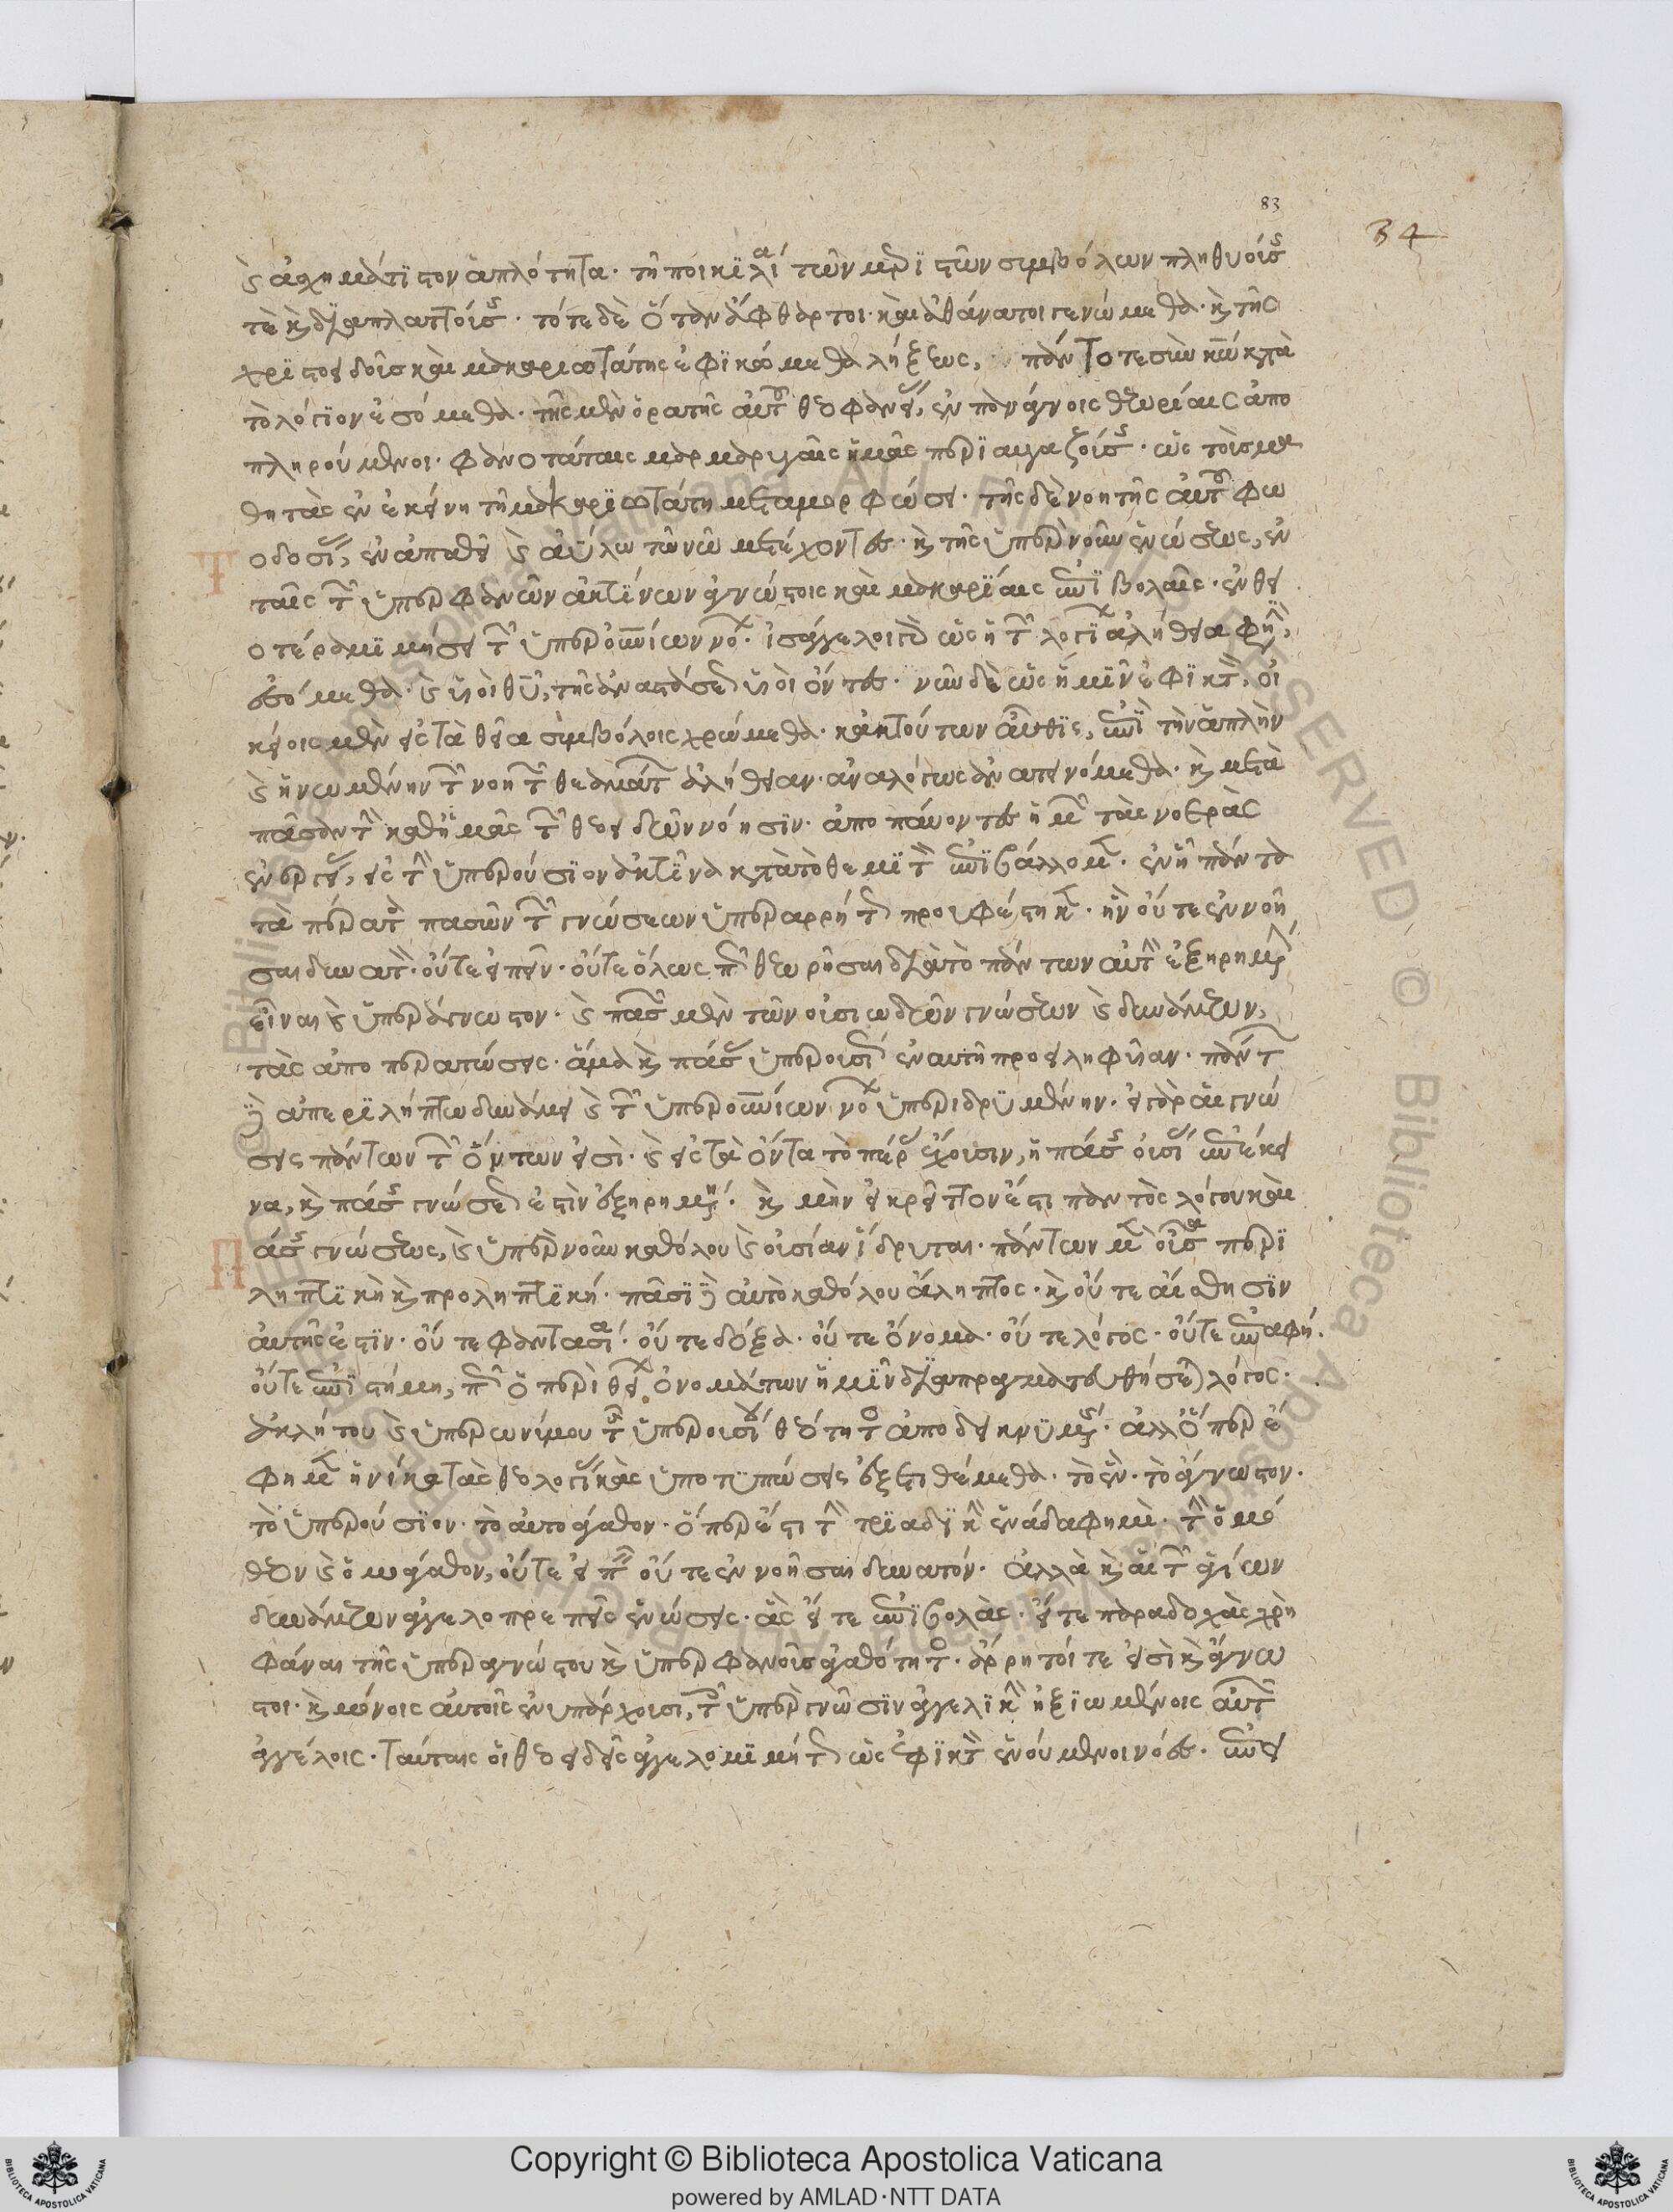 καὶ ἀσχημάτιστον ἁπλότητα· τῇ ποικιλίᾳ τῶν μεριστῶν συμβόλων πληθυούσης
τὲ καὶ διαπλαττούσης· τότε δὲ ὅταν ἄφθαρτοι καὶ ἀθάνατοι γενώμεθα· καὶ τῆς
χριστοειδοῦς καὶ μακαριωτάτης ἐφικώμεθα λήξεως, πάντοτε σὺν κυρίῳ κατὰ
τὸ λόγιον ἐσόμεθα· τῆς μὲν ὁρατῆς αὐτοῦ θεοφανείας, ἐν πανάγνοις θεωρίαις ἀπο
πληρούμενοι· φανοτάταις μαρμαρυγαῖς ἡμᾶς περιαυγαζούσης· ὡς τοὺς μα
θητὰς ἐν ἐκείνῃ τῇ μακαριωτάτῃ μεταμορφώσει· τῆς δὲ νοητῆς αὐτοῦ φωτ
οδοσίας, ἐν ἀπαθεῖ καὶ ἀΰλῳ τῷ νῷ μετέχοντες· καὶ τῆς ὑπὲρ νοῦν ἑνώσεως, ἐν
ταῖς τῶν ὑπερφανῶν ἀκτίνων ἀγνώστοις καὶ μακαρίαις ἐπιβολαῖς· ἐν θει
οτέρᾳ μιμήσει τῶν ὑπερουρανίων νοῶν· ἰσάγγελοι γὰρ ὡς ἡ τῶν λογίων ἀλήθειά φησιν,
ἐσόμεθα· καὶ υἱοὶ θεοῦ, τῆς ἀναστάσεως υἱοὶ ὄντες· νῦν δὲ ὡς ἡμῖν ἐφικτὸν, οἰ
κείοις μὲν εἰς τὰ θεῖα συμβόλοις χρώμεθα· κἀκ τούτων αὖθις, ἐπὶ τὴν ἁπλῆν
καὶ ἡνωμένην τῶν νοητῶν θεαμάτων ἀλήθειαν· ἀναλόγως ἀνατεινόμεθα· καὶ μετὰ
πᾶσαν τὴν καθ' ἡμᾶς τῶν θεοειδῶν νόησιν· ἀποπαύοντες ἡμῶν τὰς νοερὰς
ἐνεργείας, εἰς τὴν ὑπερούσιον ἀκτῖνα κατὰ τὸ θεμιτὸν ἐπιβάλλομεν· ἐν ᾗ πάντα
τὰ πέρατα πασῶν τῶν γνώσεων ὑπεραρρήτως προϋφέστηκεν· ἣν οὔτε ἐννοῆ
σαι δυνατὸν· οὔτε εἰπεῖν· οὔτε ὅλως πῶς θεωρῆσαι διὰ τὸ πάντων αὐτὴν ἐξηρημένην
εἶναι καὶ ὑπεράγνωστον· καὶ πασῶν μὲν τῶν οὐσιωδῶν γνώσεων καὶ δυνάμεων,
τὰς ἀποπερατώσεις· ἅμα καὶ πάσας ὑπερουσίως ἐν αὑτῇ προειληφυῖαν· πάντων
δὲ ἀπεριλήπτῳ δυνάμει καὶ τῶν ὑπερουρανίων νοῶν ὑπεριδρυμένην· εἰ γὰρ αἱ γνώ
σεις πάντων τῶν ὄντων εἰσὶ· καὶ εἰς τὰ ὄντα τὸ πέρας ἔχουσιν, ἡ πάσης οὐσίας ἐπέκει
να, καὶ πάσης γνώσεώς ἐστὶν ἐξῃρημένη· καὶ μὴν εἰ κρείττων ἐστι παντὸς λόγου καὶ π
άσης γνώσεως, καὶ ὑπὲρ νοῦν καθόλου καὶ οὐσίαν ἵδρυται· πάντων μὲν οὖσα περι
ληπτικὴ καὶ προληπτική· πᾶσι δὲ αὐτὸ καθόλου ἄληπτος· καὶ οὔτε αἴσθησις
αὐτῆς ἐστιν· οὔτε φαντασία· οὔτε δόξα· οὔτε ὄνομα· οὔτε λόγος· οὔτε ἐπαφή.
οὔτε ἐπιστήμη, πῶς ὁ περὶ θείων ὀνομάτων ἡμῖν διαπραγματευθήσεται λόγος.
ἀκλήτου καὶ ὑπερωνύμου τῆς ὑπερουσίου θεότητος ἀποδεικνυμένης· ἀλλ' ὅπερ ἔ
φημεν ἡνίκα τὰς θεολογικὰς ὑποτυπώσεις ἐξετιθέμεθα· τὸ ἓν· τὸ ἄγνωστον.
τὸ ὑπερούσιον· τὸ αὐτοάγαθον· ὅπερ ἐστι τὴν τριαδικὴν ἑνάδα φημὶ· τὴν ὁμό
θεον καὶ ὁμοάγαθον, οὔτε εἰπεῖν οὔτε ἐννοῆσαι δυνατόν· ἀλλὰ καὶ αἱ τῶν ἁγίων
δυνάμεων ἀγγελοπρεπεῖς ἑνώσεις· ἃς εἴτε ἐπιβολὰς· εἴτε παραδοχὰς χρὴ
φάναι τῆς ὑπεραγνώστου καὶ ὑπερφανοῦς ἀγαθότητος· ἄρρητοί τε εἰσὶ καὶ ἄγνω
στοι· καὶ μόνοις αὐτοῖς ἐνυπάρχουσι, τῶν ὑπὲρ γνῶσιν ἀγγελικὴν ἠξιωμένοις αὐτῶν
ἀγγέλοις· ταύταις οἱ θεοειδεῖς ἀγγελομιμήτως ὡς ἐφικτὸν ἑνούμενοι νόες· ἐπεὶ